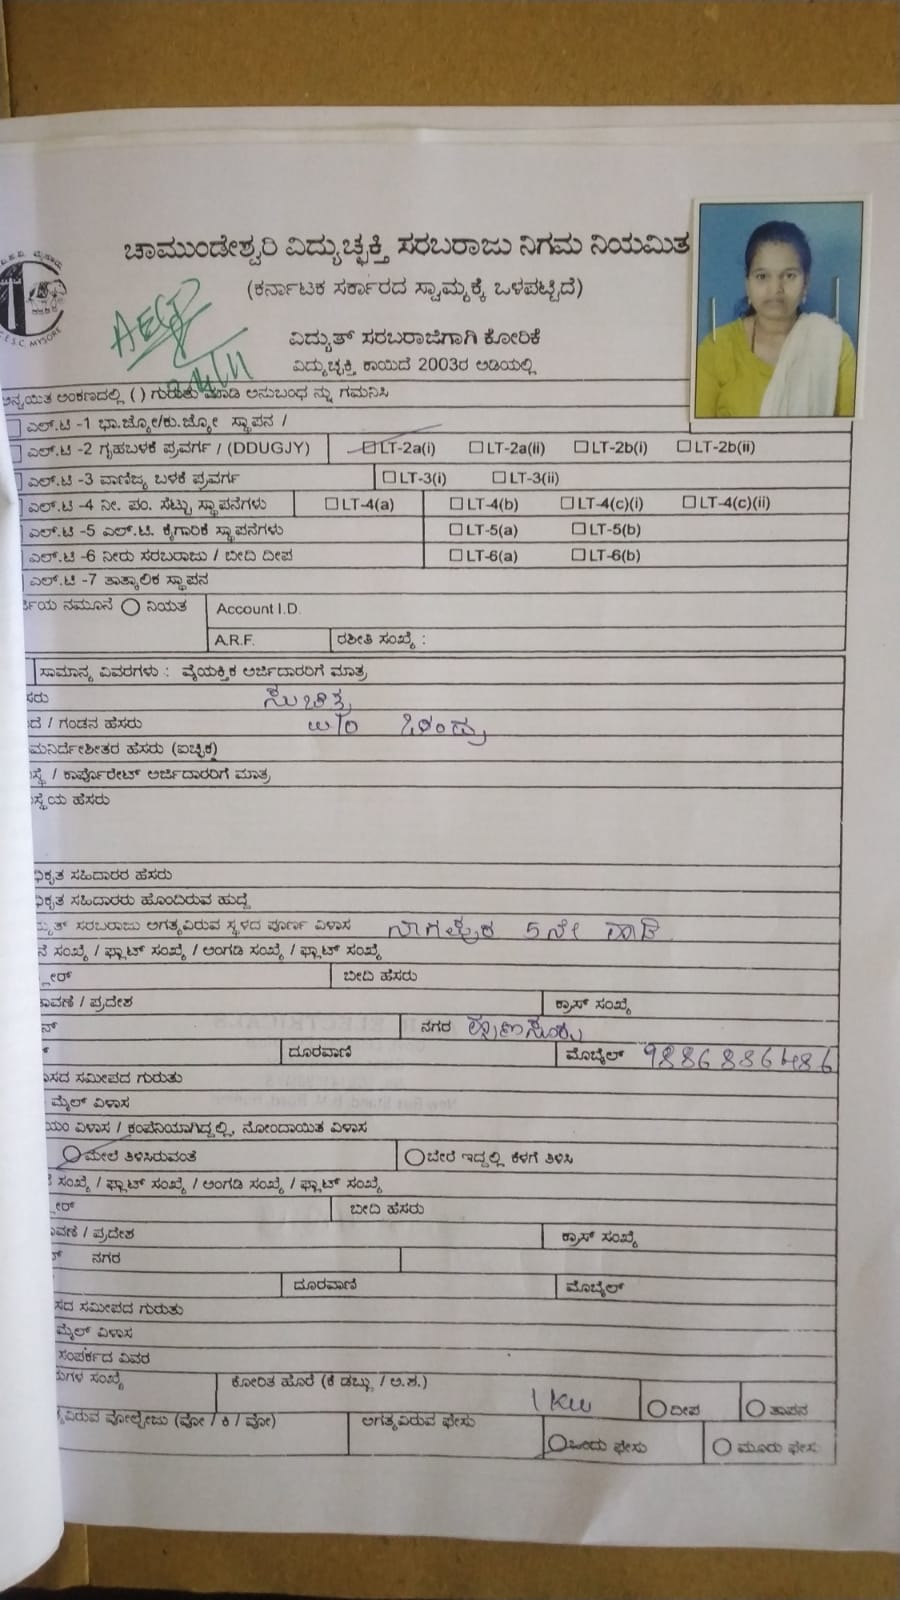 ಚಾಮುಂಡೇಶ್ವರಿ ವಿದ್ಯುಚ್ಛಕ್ತಿ ಸರಬರಾಜು ನಿಗಮ ನಿಯಮಿತ
(ಕರ್ನಾಟಕ ಸರ್ಕಾರದ ಸ್ವಾಮ್ಯಕ್ಕೆ ಒಳಪಟ್ಟಿದೆ)
C.E.S.C. MYSORE
ವಿದ್ಯುತ್ ಸರಬರಾಜಿಗಾಗಿ ಕೋರಿಕೆ
ವಿದ್ಯುಚ್ಛಕ್ತಿ ಕಾಯಿದೆ 2003ರ ಅಡಿಯಲ್ಲಿ
ಅನ್ವಯಿತ ಅಂಕಣದಲ್ಲಿ ( ) ಗುರುತು ಮಾಡಿ ಅನುಬಂಧ ನ್ನು ಗಮನಿಸಿ
ಎಲ್.ಟಿ -1 ಭಾ.ಜ್ಯೋ/ಕು.ಜ್ಯೋ ಸ್ಥಾಪನ /
ಎಲ್.ಟಿ -2 ಗೃಹಬಳಕೆ ಪ್ರವರ್ಗ / (DDUGJY) LT-2a(i) LT-2a(ii) LT-2b(i) LT-2b(ii)
ಎಲ್.ಟಿ -3 ವಾಣಿಜ್ಯ ಬಳಕೆ ಪ್ರವರ್ಗ LT-3(i) LT-3(ii)
ಎಲ್.ಟಿ -4 ನೀ. ಪಂ. ಸೆಟ್ಟು ಸ್ಥಾಪನೆಗಳು LT-4(a) LT-4(b) LT-4(c)(i) LT-4(c)(ii)
ಎಲ್.ಟಿ -5 ಎಲ್.ಟಿ. ಕೈಗಾರಿಕೆ ಸ್ಥಾಪನೆಗಳು LT-5(a) LT-5(b)
ಎಲ್.ಟಿ -6 ನೀರು ಸರಬರಾಜು / ಬೀದಿ ದೀಪ LT-6(a) LT-6(b)
ಎಲ್.ಟಿ -7 ತಾತ್ಕಾಲಿಕ ಸ್ಥಾಪನ
ನಮೂನೆ ನಿಯತ Account I.D.
A.R.F. ರಶೀತಿ ಸಂಖ್ಯೆ :
ಸಾಮಾನ್ಯ ವಿವರಗಳು : ವೈಯಕ್ತಿಕ ಅರ್ಜಿದಾರರಿಗೆ ಮಾತ್ರ
ಸುಚಿತ್ರ
/ ಗಂಡನ ಹೆಸರು W/o
ಹೆಸರು (ಐಚ್ಛಿಕ)
/ ಕಾರ್ಪೊರೇಟ್ ಅರ್ಜಿದಾರರಿಗೆ ಮಾತ್ರ
ಹೆಸರು
ಸಹಿದಾರರ ಹೆಸರು
ಸಹಿದಾರರು ಹೊಂದಿರುವ ಹುದ್ದೆ
ಸರಬರಾಜು ಅಗತ್ಯವಿರುವ ಸ್ಥಳದ ಪೂರ್ಣ ವಿಳಾಸ ನಾಗಾಪುರ 5ನೇ
ಸಂಖ್ಯೆ / ಫ್ಲಾಟ್ ಸಂಖ್ಯೆ / ಅಂಗಡಿ ಸಂಖ್ಯೆ / ಫ್ಲಾಟ್ ಸಂಖ್ಯೆ
ಬೀದಿ ಹೆಸರು
/ ಪ್ರದೇಶ ಕ್ರಾಸ್ ಸಂಖ್ಯೆ
ನಗರ ಹುಣಸೂರು
ದೂರವಾಣಿ ಮೊಬೈಲ್ 9886886486
ಸಮೀಪದ ಗುರುತು
ಮೈಲ್ ವಿಳಾಸ
ವಿಳಾಸ / ಕಂಪೆನಿಯಾಗಿದ್ದಲ್ಲಿ, ನೋಂದಾಯಿತ ವಿಳಾಸ
ಮೇಲೆ ತಿಳಿಸಿರುವಂತೆ ಬೇರೆ ಇದ್ದಲ್ಲಿ ಕೆಳಗೆ ತಿಳಿಸಿ
ಸಂಖ್ಯೆ / ಫ್ಲಾಟ್ ಸಂಖ್ಯೆ / ಅಂಗಡಿ ಸಂಖ್ಯೆ / ಫ್ಲಾಟ್ ಸಂಖ್ಯೆ
ಬೀದಿ ಹೆಸರು
/ ಪ್ರದೇಶ ಕ್ರಾಸ್ ಸಂಖ್ಯೆ
ನಗರ
ದೂರವಾಣಿ ಮೊಬೈಲ್
ಸಮೀಪದ ಗುರುತು
ಮೈಲ್ ವಿಳಾಸ
ಸಂಪರ್ಕದ ವಿವರ
ಸಂಖ್ಯೆ ಕೋರಿತ ಹೊರೆ (ಕೆ ಡಬ್ಲು / ಅ.ಶ.) 1 KW ದೀಪ ತಾಪನ
ವೋಲ್ಟೇಜು (ವೋ / ಕಿ / ವೋ) ಅಗತ್ಯವಿರುವ ಫೇಸು ಒಂದು ಫೇಸು ಮೂರು ಫೇಸು